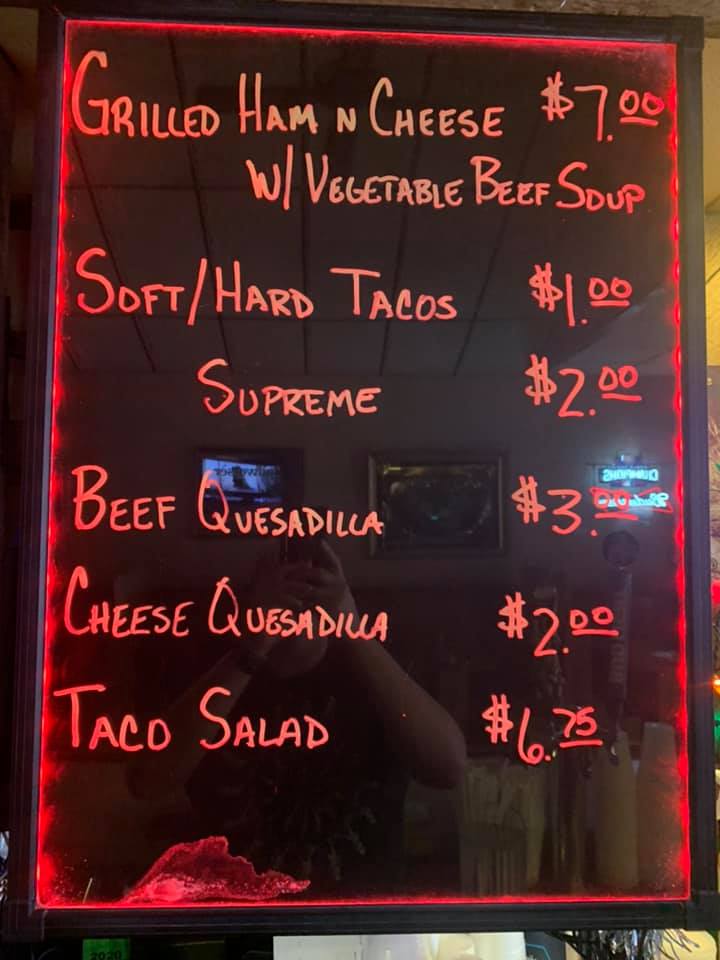 GRILLED HAM N CHEESE $7.00
W/ VEGETABLE BEEF SOUP
SOFT/HARD TACOS $1.00
SUPREME $2.00
BEEF QUESADILLA $3.00
CHEESE QUESADILLA $2.00
TACO SALAD $6.75
2020